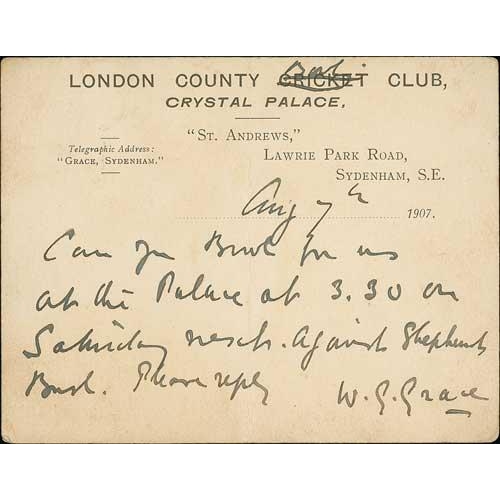 Bowls
LONDON COUNTY CRICKET CLUB,
CRYSTAL PALACE,
"ST. ANDREWS,"
LAWRIE PARK ROAD,
SYDENHAM, S.E.
Telegraphic Address:
"GRACE, SYDENHAM."
Aug 7th 1907.
Can you Bowl for us
at the Palace at 3.30 on
Saturday next. against Shepherds
Bush. Please reply
W. G. Grace